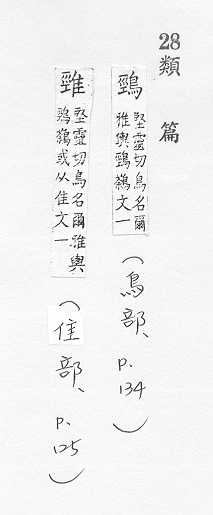 28類 篇
鵛
堅靈切鳥名爾
雅輿鵛鶟文一
(鳥部、p.134)
堅靈切鳥名爾雅輿
鵛鶟或从隹文一
(隹部、p.125)